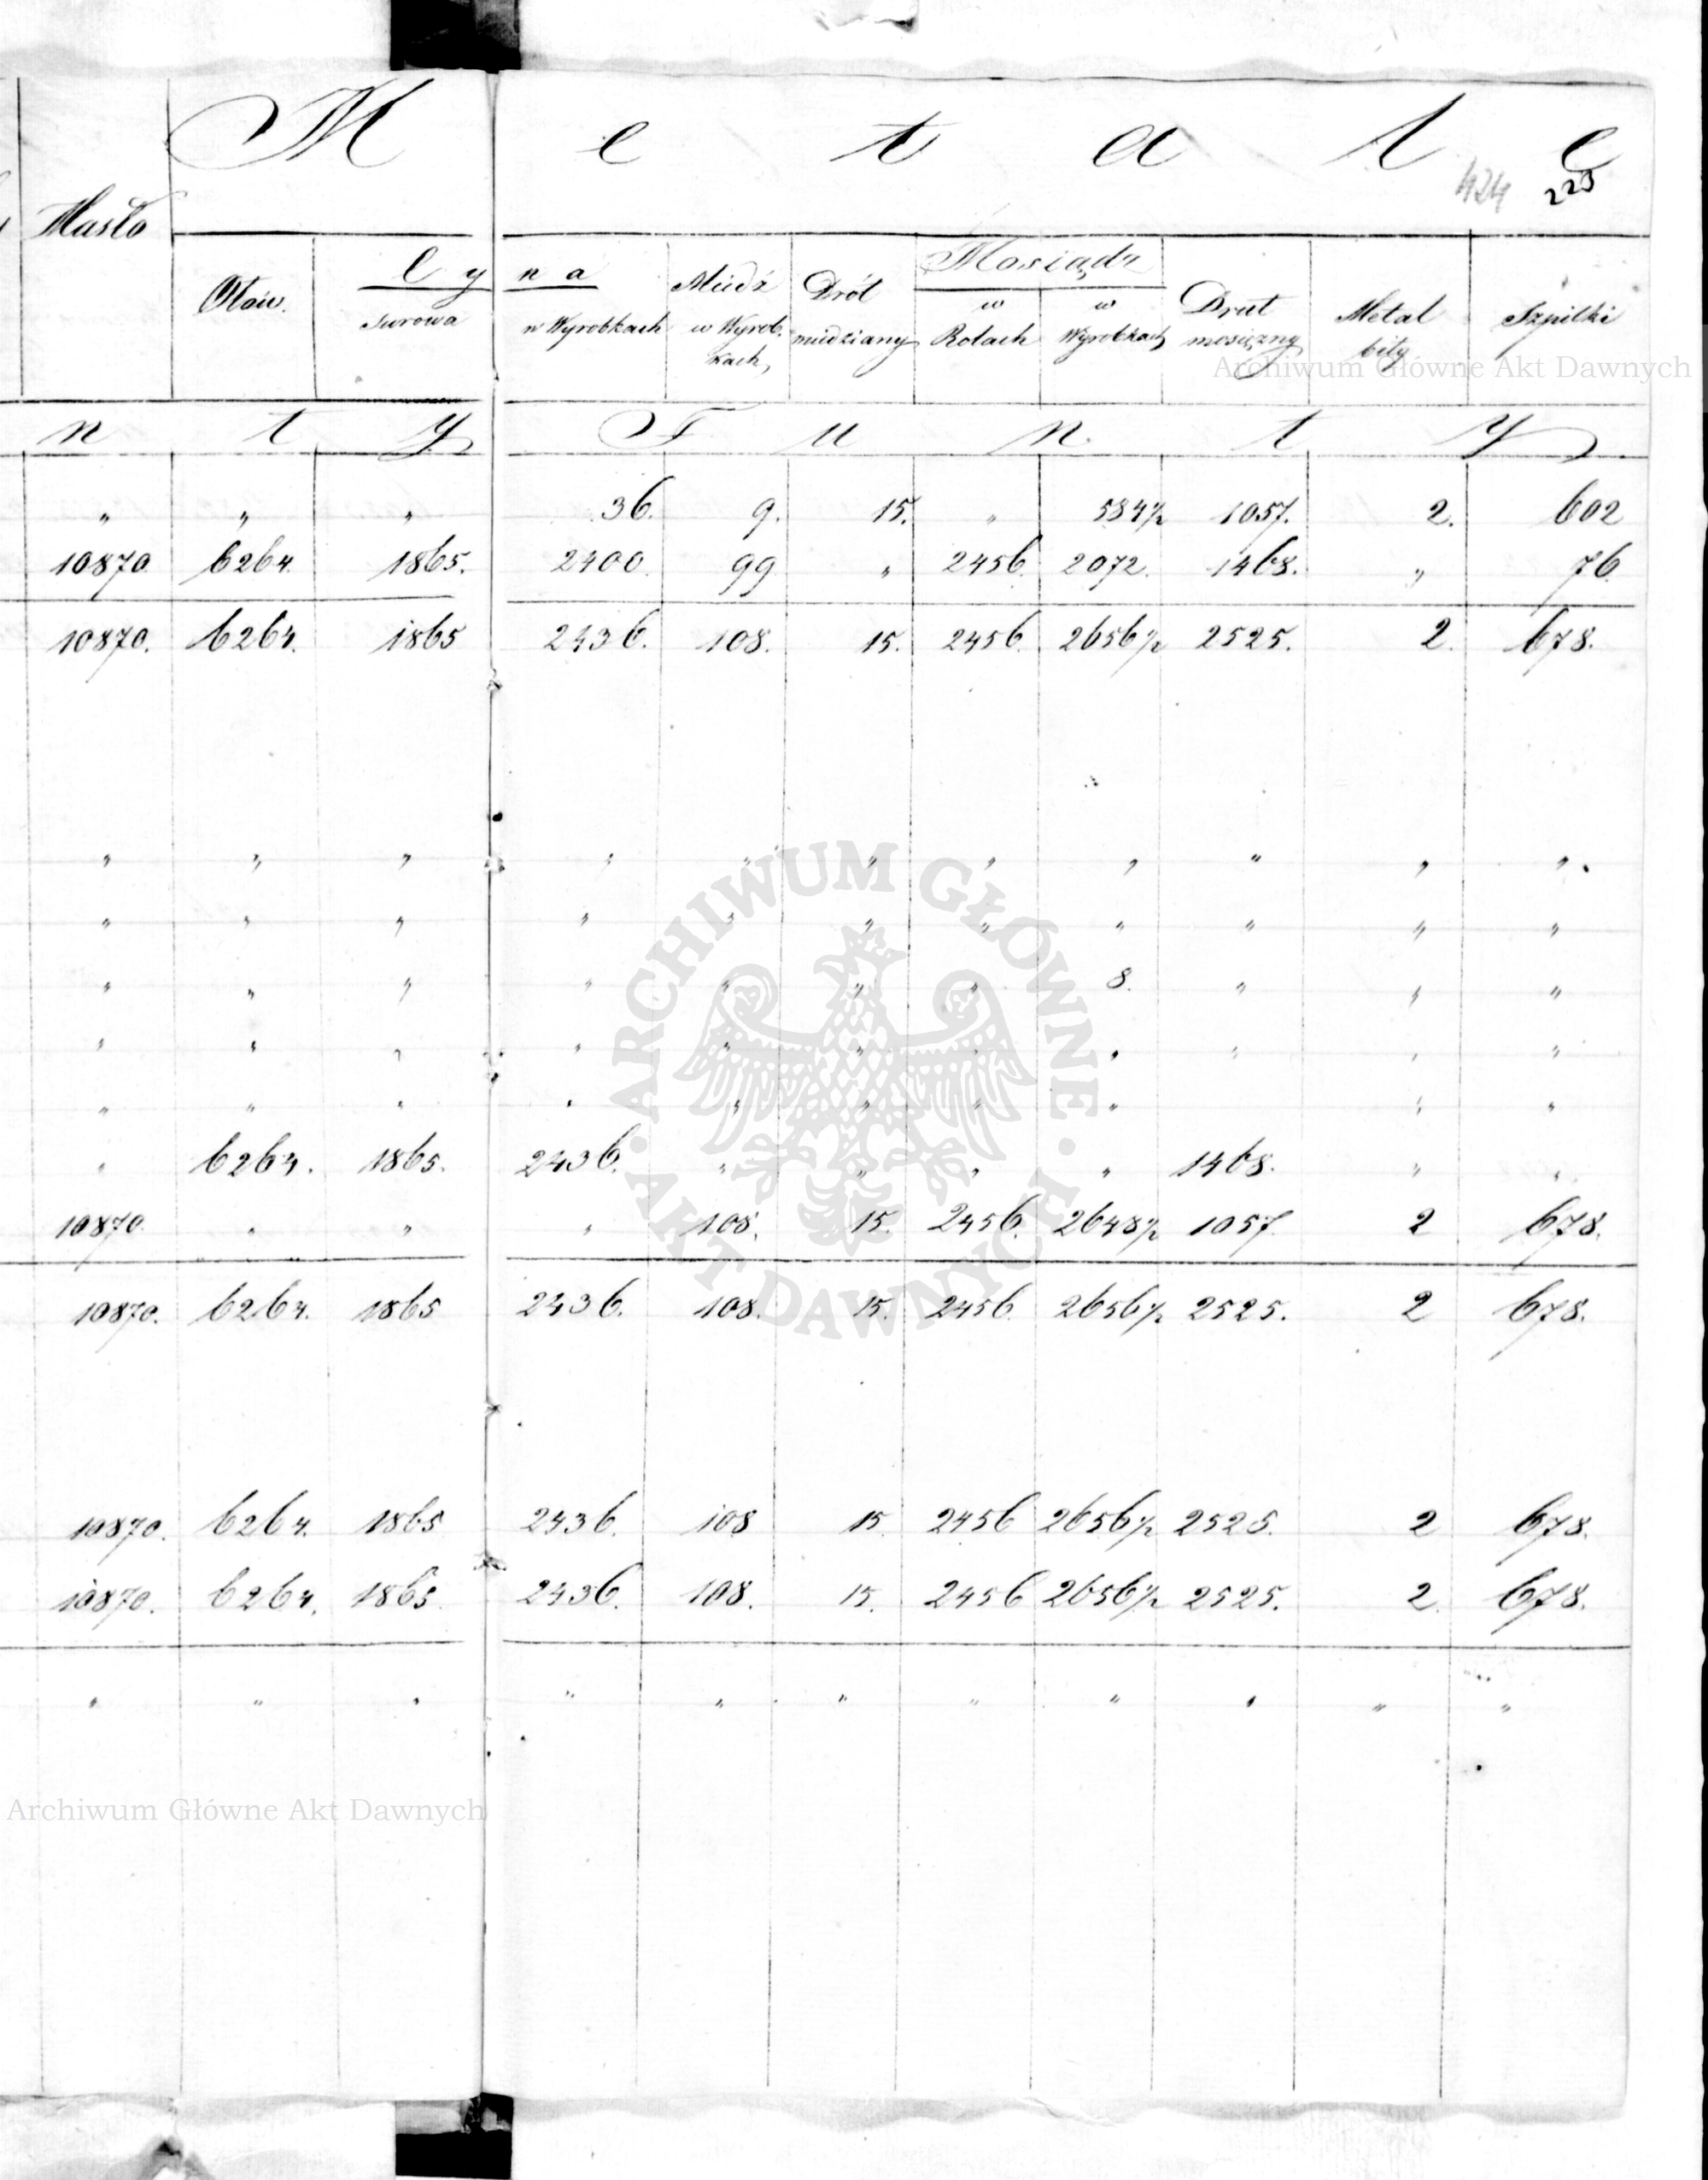 M e t a l e
424 223
Masło
Ołów. Cyna Miedź Drót Mosiądz Drut Metal Szpilki
surowa w Wyrobkach w Wyrob- miedziany w w mosiężny bity
kach, Rolach Wyrobkach
n t y F u n t y
" " " 36. 9. 15. " 584½ 1057. 2. 602
10870 6264. 1865. 2400. 99 " 2456. 2072. 1468. " 76.
10870. 6264. 1865 2436. 108. 15. 2456. 2656½ 2525. 2. 678.
" " " " " " " " " " "
" " " " " " " " " " "
" " " " " " " 8. " " "
" " " " " " " " " " "
" " " " " " " " " "
" 6264. 1865. 2436. " " " " 1468. " "
10870. " " " 108. 15. 2456. 2648½ 1057. 2 678.
10870. 6264. 1865 2436. 108. 15. 2456. 2656½ 2525. 2 678.
10870. 6264. 1865 2436. 108 15. 2456 2656½ 2525. 2 678.
10870. 6264. 1865 2436. 108. 15. 2456 2656½ 2525. 2. 678.
" " " " " " " " " " "
Archiwum Główne Akt Dawnych
ARCHIWUM GŁÓWNE · AKT DAWNYCH ·
Archiwum Główne Akt Dawnych